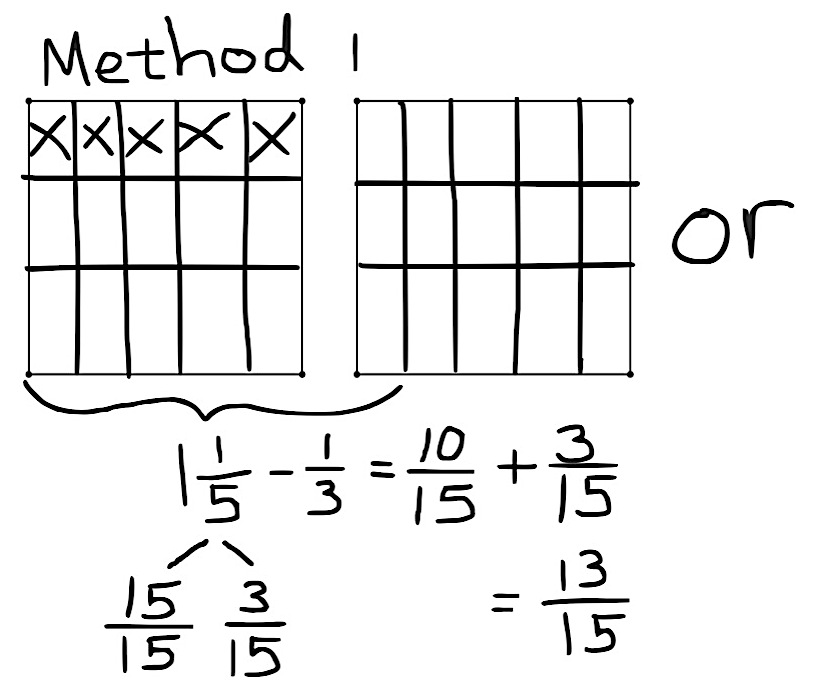 Method 1
X X X X X
or
1 1/5 - 1/3 = 10/15 + 3/15
15/15 3/15
= 13/15